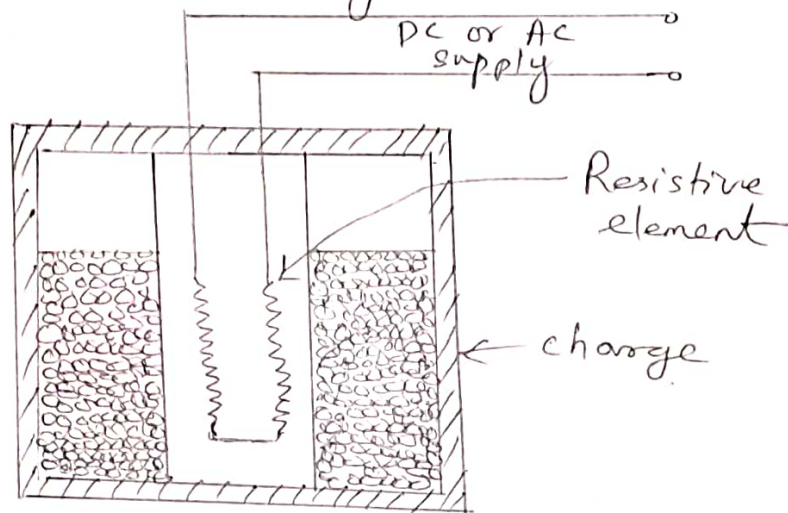 DC or AC
supply
Resistive
element
charge